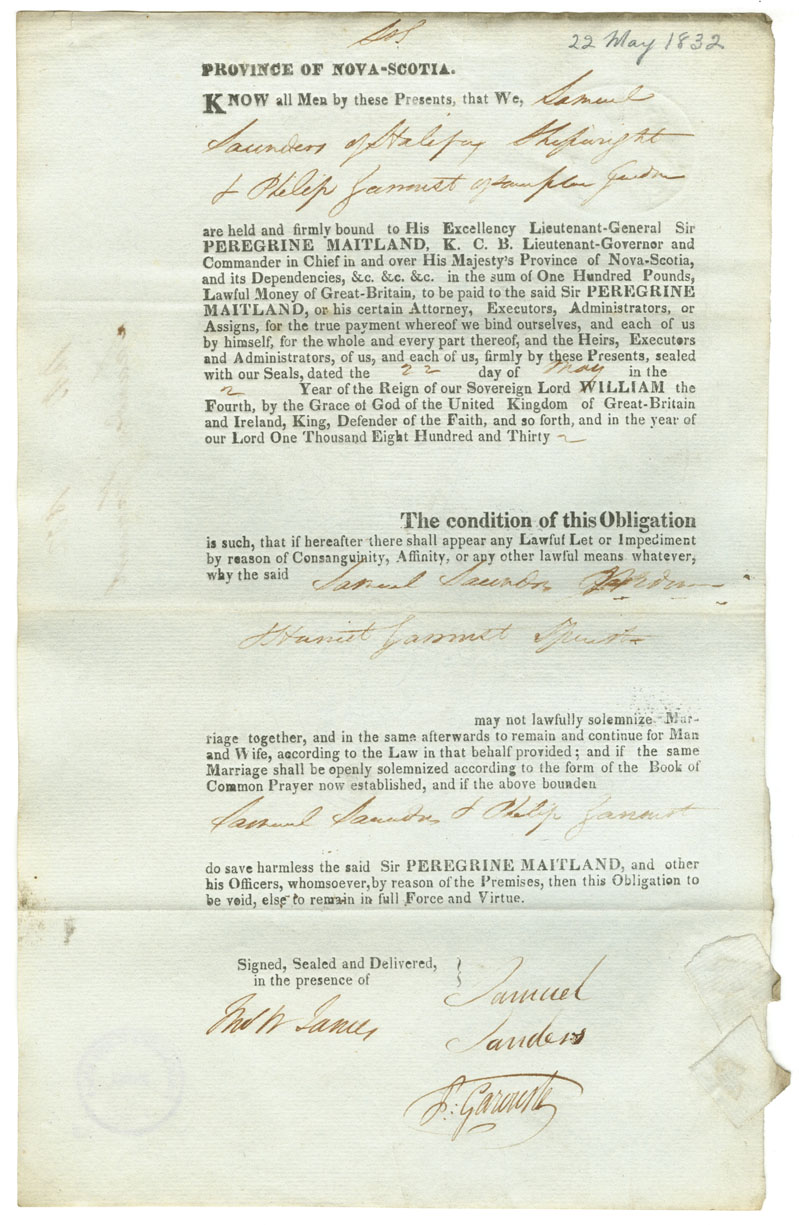 22 May 1832
PROVINCE OF NOVA-SCOTIA.
KNOW all Men by these Presents, that We, Samuel
Saunders of Halifax Shipwright
& Philip Garroust of same place
are held and firmly bound to His Excellency Lieutenant-General Sir
PEREGRINE MAITLAND, K. C. B. Lieutenant-Governor and
Commander in Chief in and over His Majesty's Province of Nova-Scotia,
and its Dependencies, &c. &c. &c. in the sum of One Hundred Pounds,
Lawful Money of Great-Britain, to be paid to the said Sir PEREGRINE
MAITLAND, or his certain Attorney, Executors, Administrators, or
Assigns, for the true payment whereof we bind ourselves, and each of us
by himself, for the whole and every part thereof, and the Heirs, Executors
and Administrators, of us, and each of us, firmly by these Presents, sealed
with our Seals, dated the 22 day of May in the
2 Year of the Reign of our Sovereign Lord WILLIAM the
Fourth, by the Grace of God of the United Kingdom of Great-Britain
and Ireland, King, Defender of the Faith, and so forth, and in the year of
our Lord One Thousand Eight Hundred and Thirty 2
The condition of this Obligation
is such, that if hereafter there shall appear any Lawful Let or Impediment
by reason of Consanguinity, Affinity, or any other lawful means whatever,
why the said Samuel Saunders
& Harriet Garroust Spinster
may not lawfully solemnize Mar-
riage together, and in the same afterwards to remain and continue for Man
and Wife, according to the Law in that behalf provided; and if the same
Marriage shall be openly solemnized according to the form of the Book of
Common Prayer now established, and if the above bounden
Samuel Saunders & Philip Garroust
do save harmless the said Sir PEREGRINE MAITLAND, and other
his Officers, whomsoever, by reason of the Premises, then this Obligation to
be void, else to remain in full Force and Virtue.
Signed, Sealed and Delivered,
in the presence of
Thos W James
Samuel
Sanders
P: Garouste